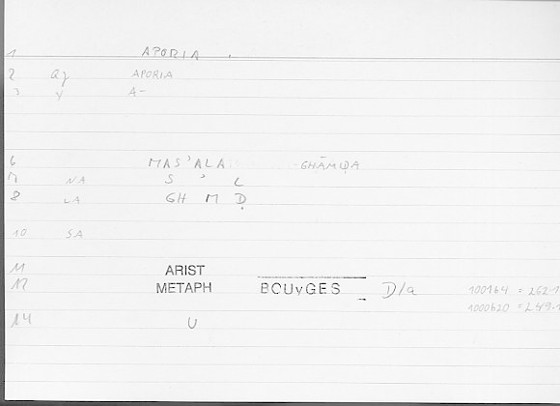 1 APORIA .
2 Qz APORIA
3 y A-
6 MAS'ALA GHĀMIḌA
7 NA S ' L
8 LA GH M Ḍ
10 SA
11 ARIST
12 METAPH BOUyGES D/a 100964 = 262.1
1000620 = 249.1
14 U